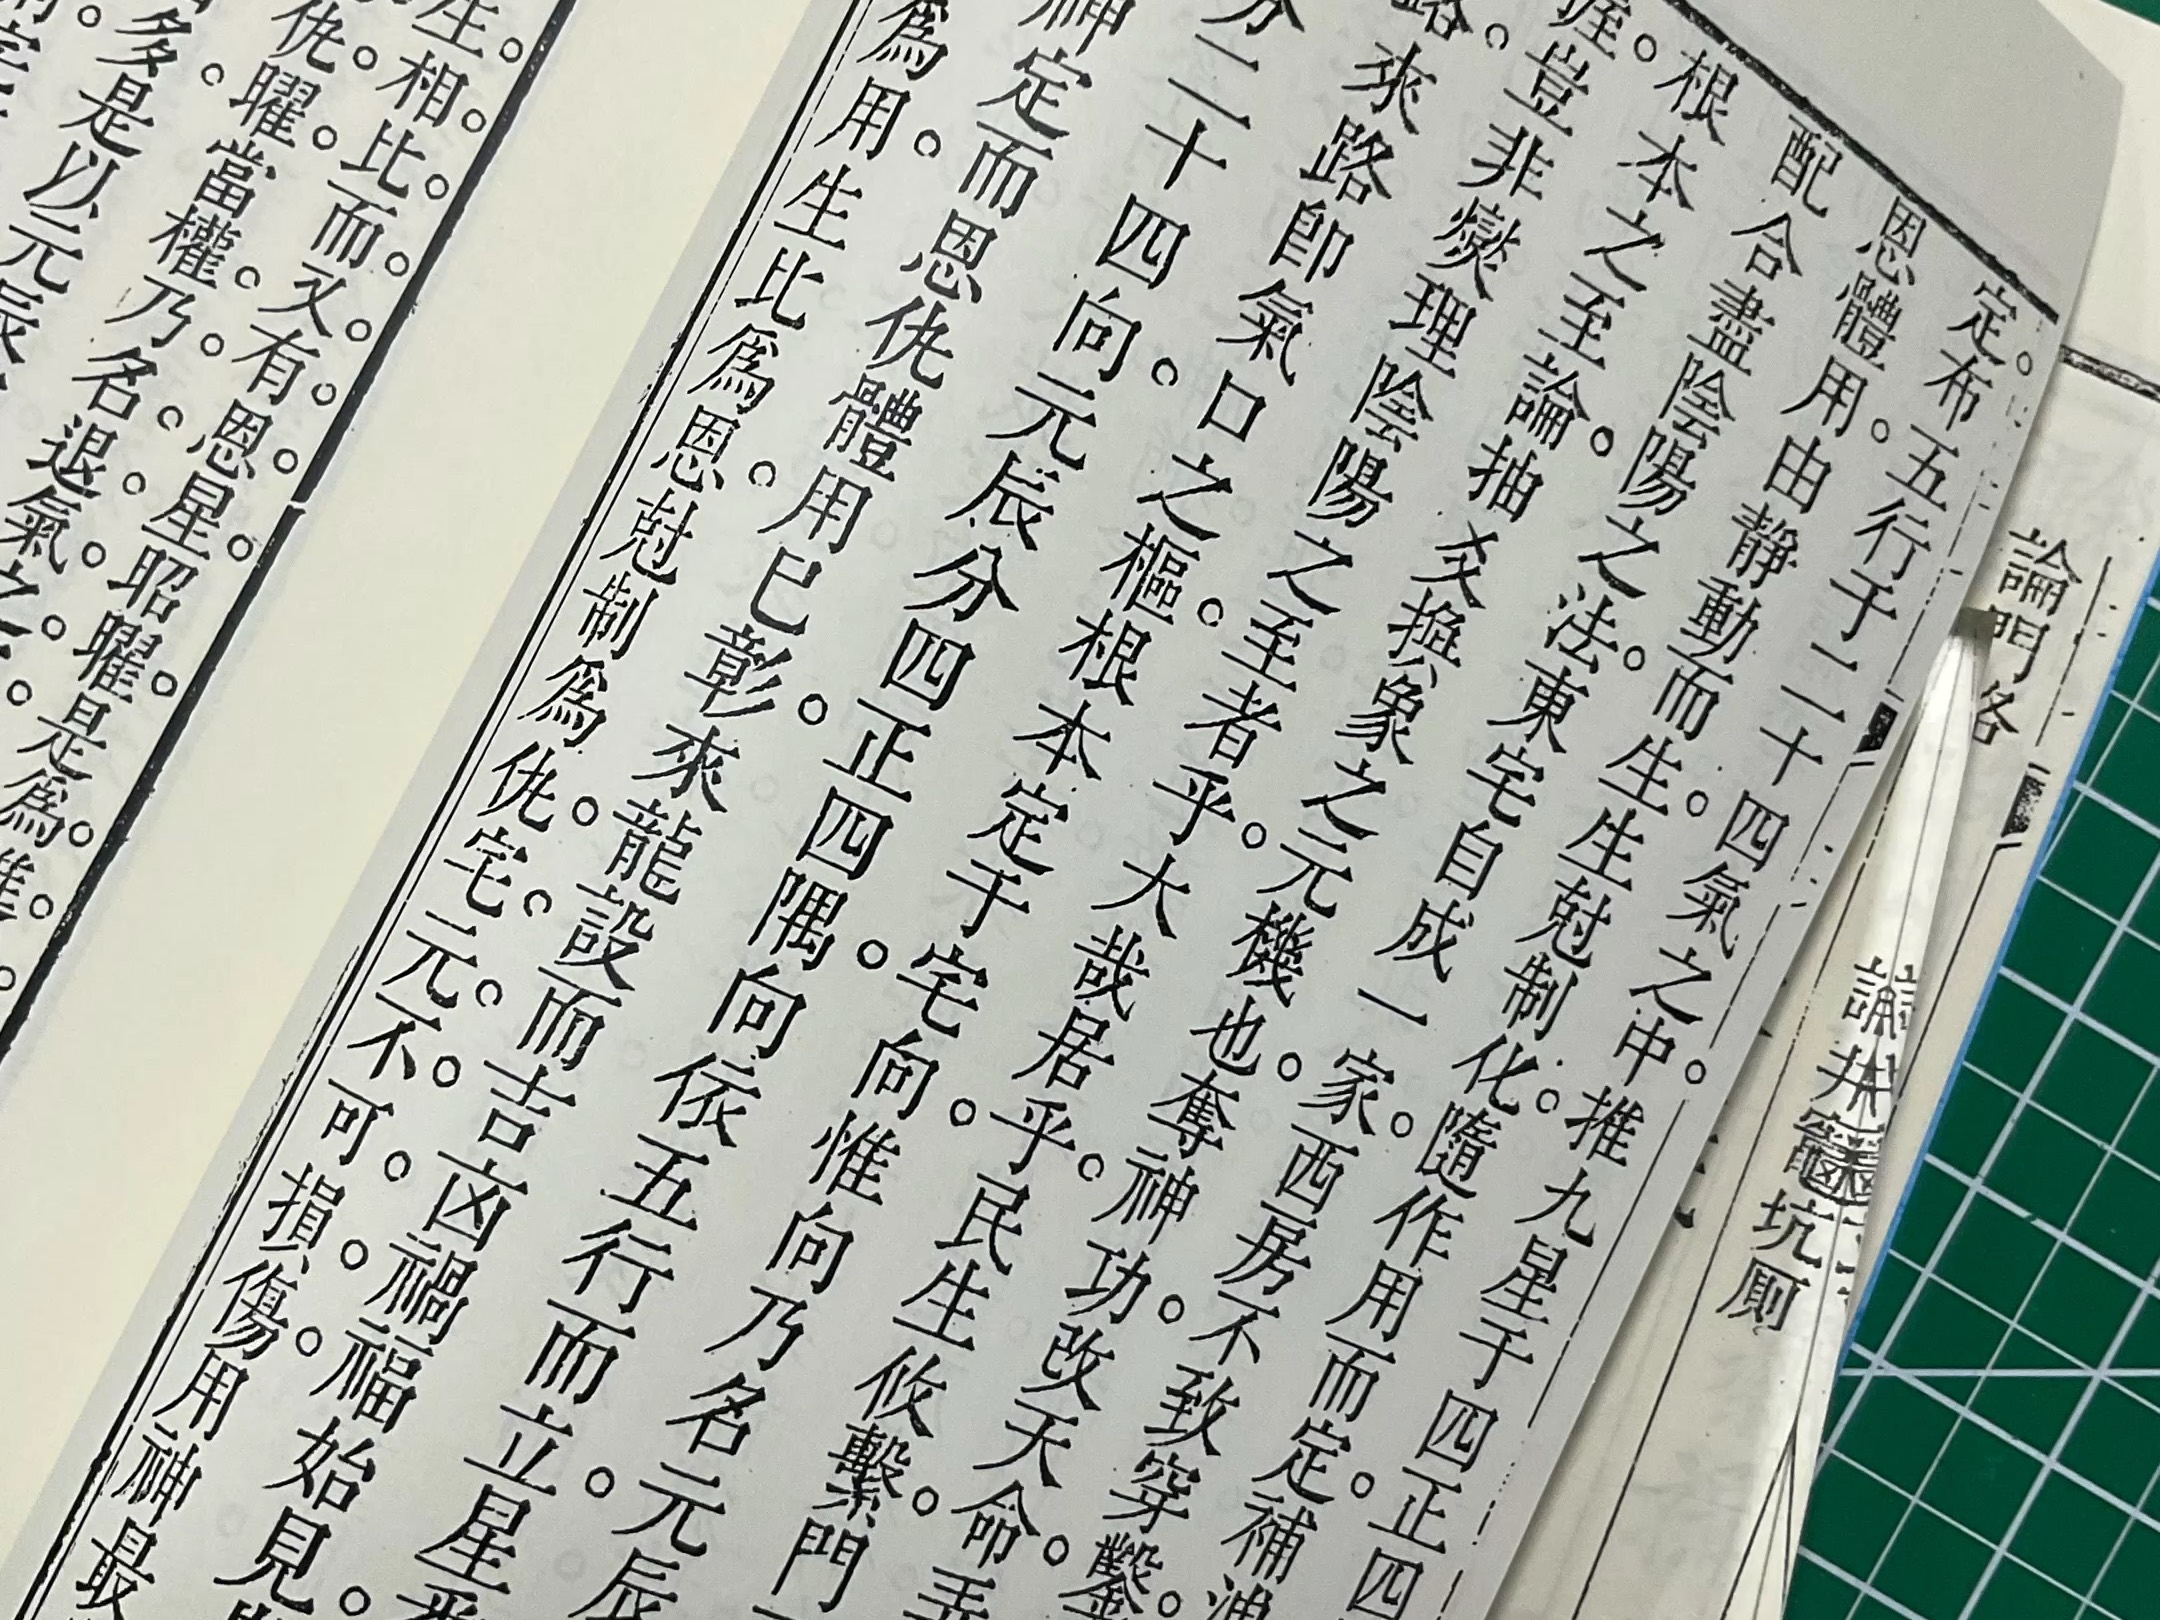 論門路
論井竈坑厠
定。布五行于二十四氣之中。推九星于四正四
恩體用。由靜動而。生生尅制化。隨作用而定。補洩
配合盡陰陽之法。東宅自成一家。西房不致穿鑿。
根本之至論。抽爻換象之元機也。奪神功。改天命。弄
握。豈非燮理陰陽之至者乎。大哉居乎。民生攸繫。門
路。來路卽氣口之樞。根本定于宅向。惟向乃名元辰
分二十四向。元辰分四正四隅。向依五行而立。星
神定而恩仇體用已彰。來龍設而吉凶禍福始見。
爲用。生比爲恩。尅制爲仇。宅。元。不。可。損。傷。用神最
生。相。比。而。又。有。恩。星。昭曜。是爲。
仇。曜。當權。乃。名。退。氣。之。
多。是以元辰